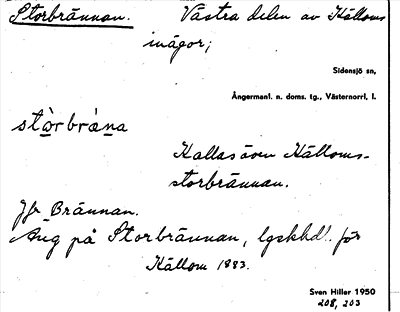 Storbrännan. Västra delen av Källoms
inägor;
Sidensjö sn,
Ångermanl. n. doms. tg., Västernorrl. l.
stòrbrǻna
Kallas även Källoms-
storbrännan.
Jfr Brännan.
Äng på Storbrännan, lgskhdl. för
Källom 1883.
Sven Hiller 1950
208, 203